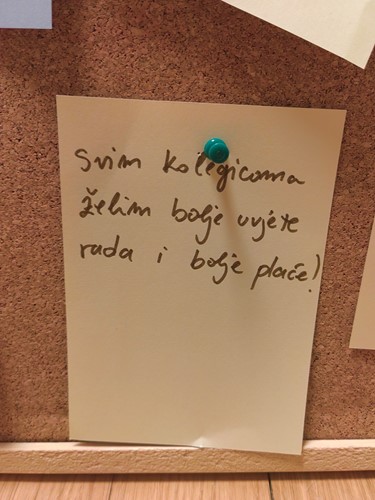 Svim kolegicama
želim bolje uvjete
rada i bolje plaće!